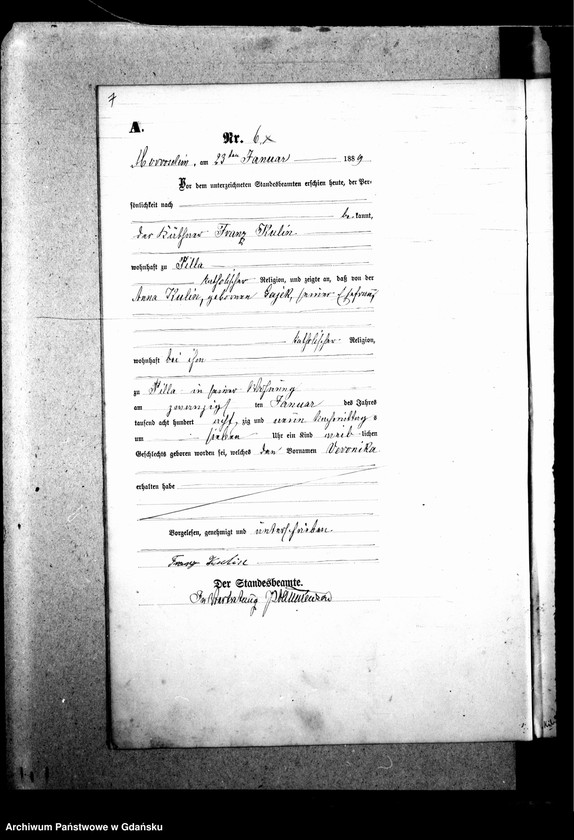 7
A.
Nr. 6
am 23ten Januar 1889
Vor dem unterzeichneten Standesbeamten erschien heute, der Per-
sönlichkeit nach
be-kannt,
der Käthner Franz Kulin
wohnhaft zu Pilla
katholischer Religion, und zeigte an, daß von der
Anna Kulin, geborenen seiner Ehefrau,
katholischer Religion,
wohnhaft bei ihm
zu Pilla in seiner Wohnung
am zwanzigsten Januar des Jahres
tausend acht hundert acht zig und neun Nachmittags
um sieben Uhr ein Kind weib-lichen
Geschlechts geboren worden sei, welches den Vornamen Veronika
erhalten habe
Vorgelesen, genehmigt und unterschrieben
Franz Kulin
Der Standesbeamte.
In Vertretung
Archiwum Państwowe w Gdańsku